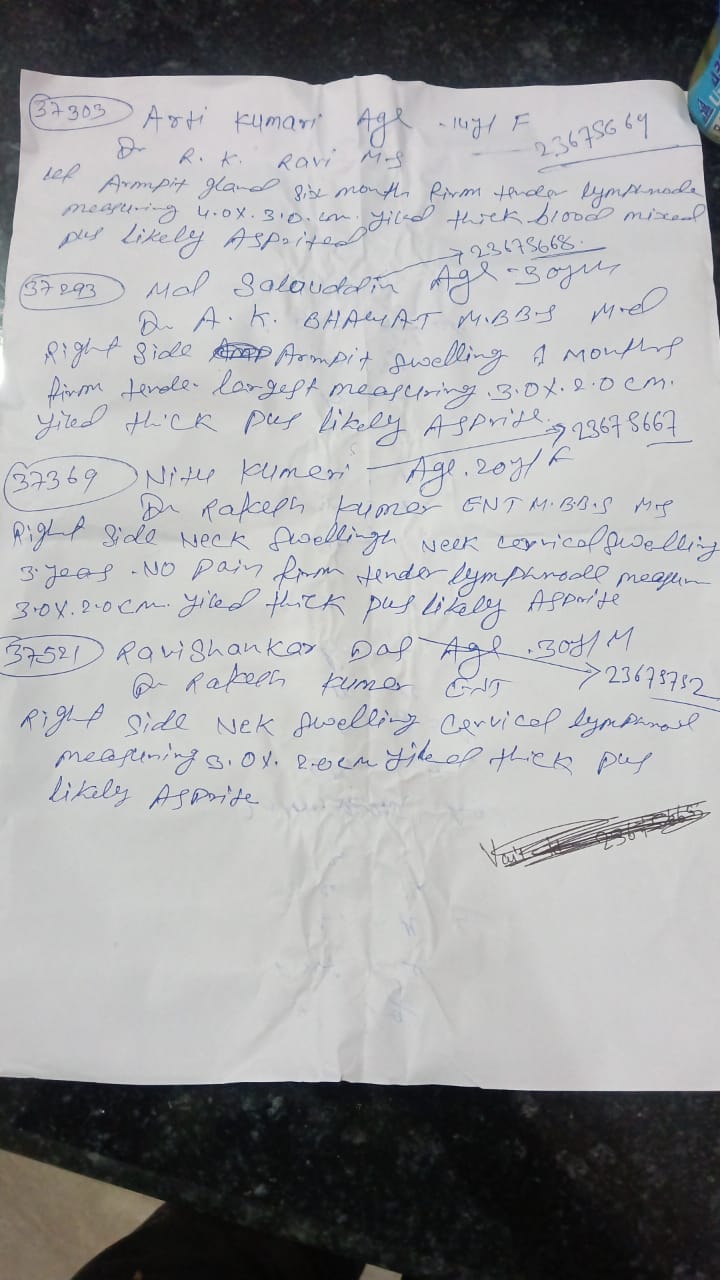 37303 Arti Kumari Age - 14y/ F 23675669
Dr R. K. Ravi M-S
lef Armpit gland six month firm tender lymphnode
measuring 4.0X.3.0.cm. yiled thick blood mixed
pus likely Asprited
37293 Md Salauddin Age - 30yrs 23675668.
Dr A. K. BHAGAT M.BB-S M-d
Right Side Armpit Swelling 1 Months
firm tender largest measuring.3.0X.2.0 cm.
yiled thick pus likely Asprite. 23675667
37369 Nitu Kumari Age.20y/ F
Dr Rakesh Kumar ENT M.BB.S M-S
Right Side Neck Swellingh Neek cervical Swelling
3.yeas - NO Pain firm tender lymphnode measum
3.0X.2.0cm. yiled thick pus likely Asprite
37521 Ravishankar Das Age .30y/ M
Dr Rakesh Kumar ENT 23675752
Right Side Nek Swelling Cervical lymphnode
measuring 3.0X.2.0cm yiled thick pus
likely Asprite